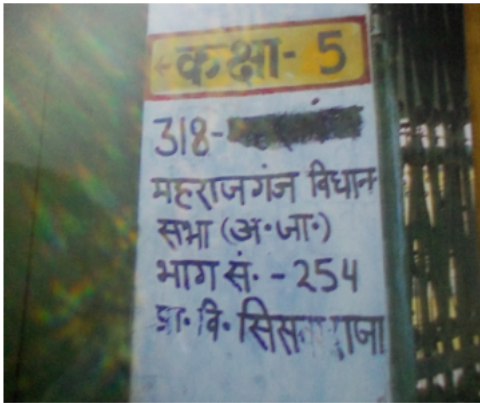 कक्षा- 5
318-
महराजगंज विधान
सभा (अ॰जा॰)
भाग सं॰ - 254
प्रा॰ वि॰